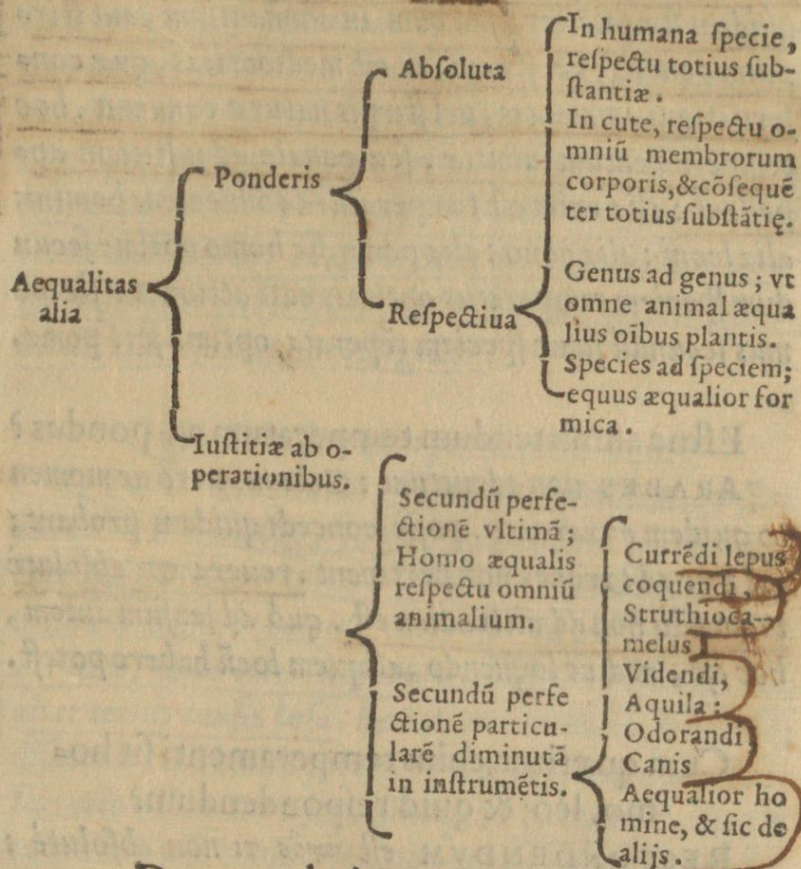 Aequalitas
alia
Ponderis
Abſoluta
In humana ſpecie,
reſpectu totius ſub-
ſtantiæ.
In cute, reſpectu o-
mniū membrorum
corporis,&cōſequē
ter totius ſubſtātię.
Reſpectiua
Genus ad genus; vt
omne animal æqua
lius oībus plantis.
Species ad ſpeciem;
equus æqualior for
mica.
Iuſtitiæ ab o-
perationibus.
Secundū perfe-
ctionē vltimā;
Homo æqualis
reſpectu omniū
animalium.
Secundū perfe
ctionē particu-
larē diminutā
in inſtrumētis.
Currēdi lepus
coquendi,
Struthioca-
melus
Videndi,
Aquila:
Odorandi
Canis
Aequalior ho
mine, & ſic de
alijs.